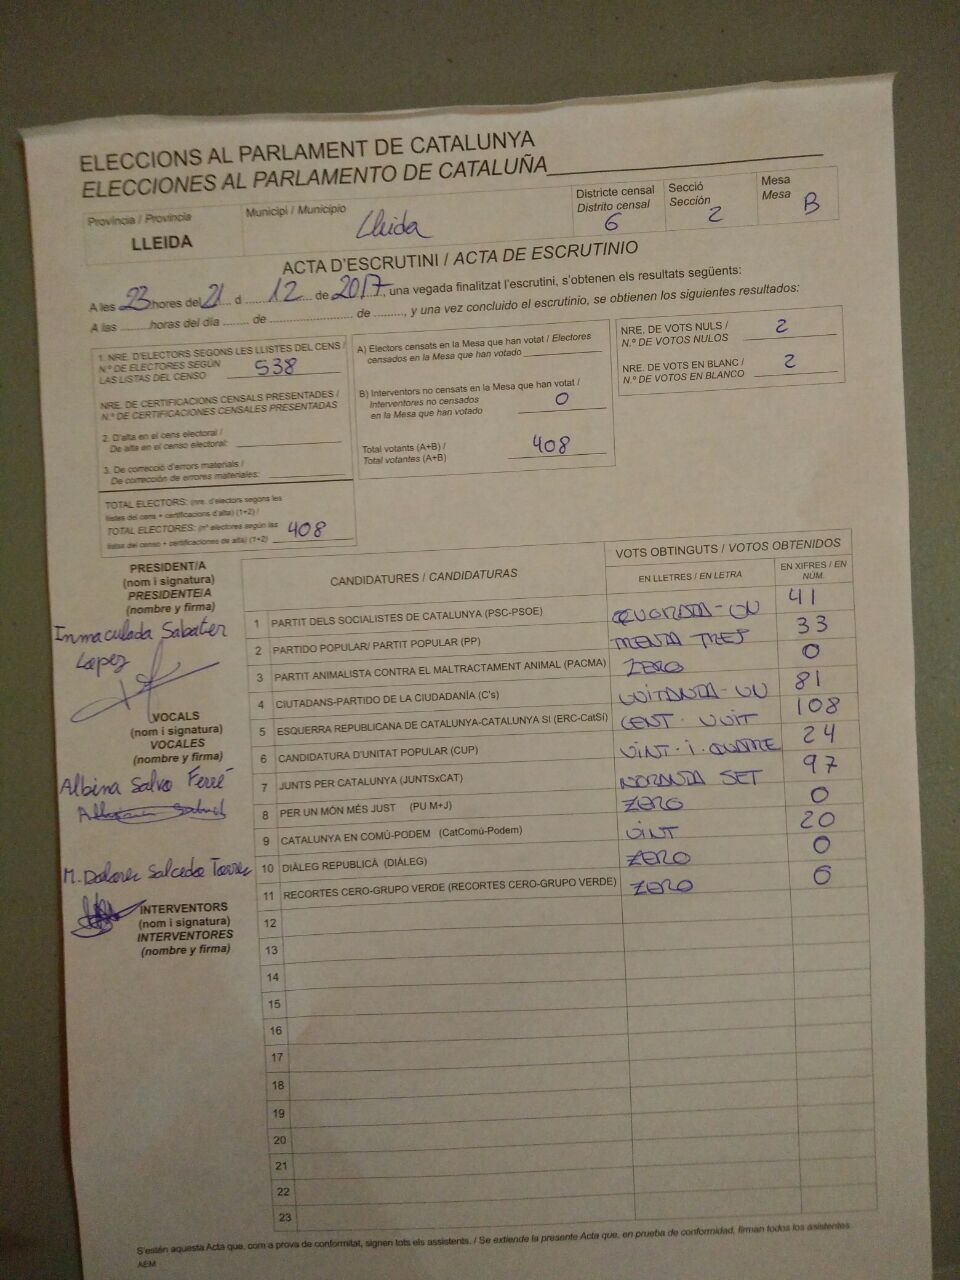 ELECCIONS AL PARLAMENT DE CATALUNYA
ELECCIONES AL PARLAMENTO DE CATALUÑA
Província / Provincia
LLEIDA
Municipi / Municipio
Lleida
Districte censal
Distrito censal
6
Secció
Sección
2
Mesa
Mesa
B
ACTA D'ESCRUTINI / ACTA DE ESCRUTINIO
A les 23 hores del 21 d 12 de 2017, una vegada finalitzat l'escrutini, s'obtenen els resultats següents:
A las .........horas del día ........ de .......................... de ........., y una vez concluido el escrutinio, se obtienen los siguientes resultados:
1. NRE. D'ELECTORS SEGONS LES LLISTES DEL CENS /
N.º DE ELECTORES SEGÚN
LAS LISTAS DEL CENSO 538
NRE. DE CERTIFICACIONS CENSALS PRESENTADES /
N.º DE CERTIFICACIONES CENSALES PRESENTADAS
2. D'alta en el cens electoral /
De alta en el censo electoral:
3. De correcció d'errors materials /
De corrección de errores materiales:
TOTAL ELECTORS: (nre. d'electors segons les
llistes del cens + certificacions d'alta) (1+2) /
TOTAL ELECTORES: (nº electores según las
listas del censo + certificaciones de alta) (1+2) 408
A) Electors censats en la Mesa que han votat / Electores
censados en la Mesa que han votado
B) Interventors no censats en la Mesa que han votat /
Interventores no censados
en la Mesa que han votado 0
Total votants (A+B) /
Total votantes (A+B) 408
NRE. DE VOTS NULS /
N.º DE VOTOS NULOS 2
NRE. DE VOTS EN BLANC /
N.º DE VOTOS EN BLANCO 2
PRESIDENT/A
(nom i signatura)
PRESIDENTE/A
(nombre y firma)
Inmaculada Sabater
Lopez
VOCALS
(nom i signatura)
VOCALES
(nombre y firma)
Albina Salvo Ferré
M. Dolores Salcedo Torres
INTERVENTORS
(nom i signatura)
INTERVENTORES
(nombre y firma)
CANDIDATURES / CANDIDATURAS
VOTS OBTINGUTS / VOTOS OBTENIDOS
EN LLETRES / EN LETRA
EN XIFRES / EN NÚM.
1 PARTIT DELS SOCIALISTES DE CATALUNYA (PSC-PSOE) QUORANTA-UN 41
2 PARTIDO POPULAR/ PARTIT POPULAR (PP) TRENTA TRES 33
3 PARTIT ANIMALISTA CONTRA EL MALTRACTAMENT ANIMAL (PACMA) ZERO 0
4 CIUTADANS-PARTIDO DE LA CIUDADANÍA (C's) VUITANTA-UN 81
5 ESQUERRA REPUBLICANA DE CATALUNYA-CATALUNYA SÍ (ERC-CatSí) CENT-VUIT 108
6 CANDIDATURA D'UNITAT POPULAR (CUP) VINT-I-QUATRE 24
7 JUNTS PER CATALUNYA (JUNTSxCAT) NORANTA SET 97
8 PER UN MÓN MÉS JUST (PU M+J) ZERO 0
9 CATALUNYA EN COMÚ-PODEM (CatComú-Podem) VINT 20
10 DIÀLEG REPUBLICÀ (DIÀLEG) ZERO 0
11 RECORTES CERO-GRUPO VERDE (RECORTES CERO-GRUPO VERDE) ZERO 0
12
13
14
15
16
17
18
19
20
21
22
23
S'estén aquesta Acta que, com a prova de conformitat, signen tots els assistents. / Se extiende la presente Acta que, en prueba de conformidad, firman todos los asistentes.
AEM